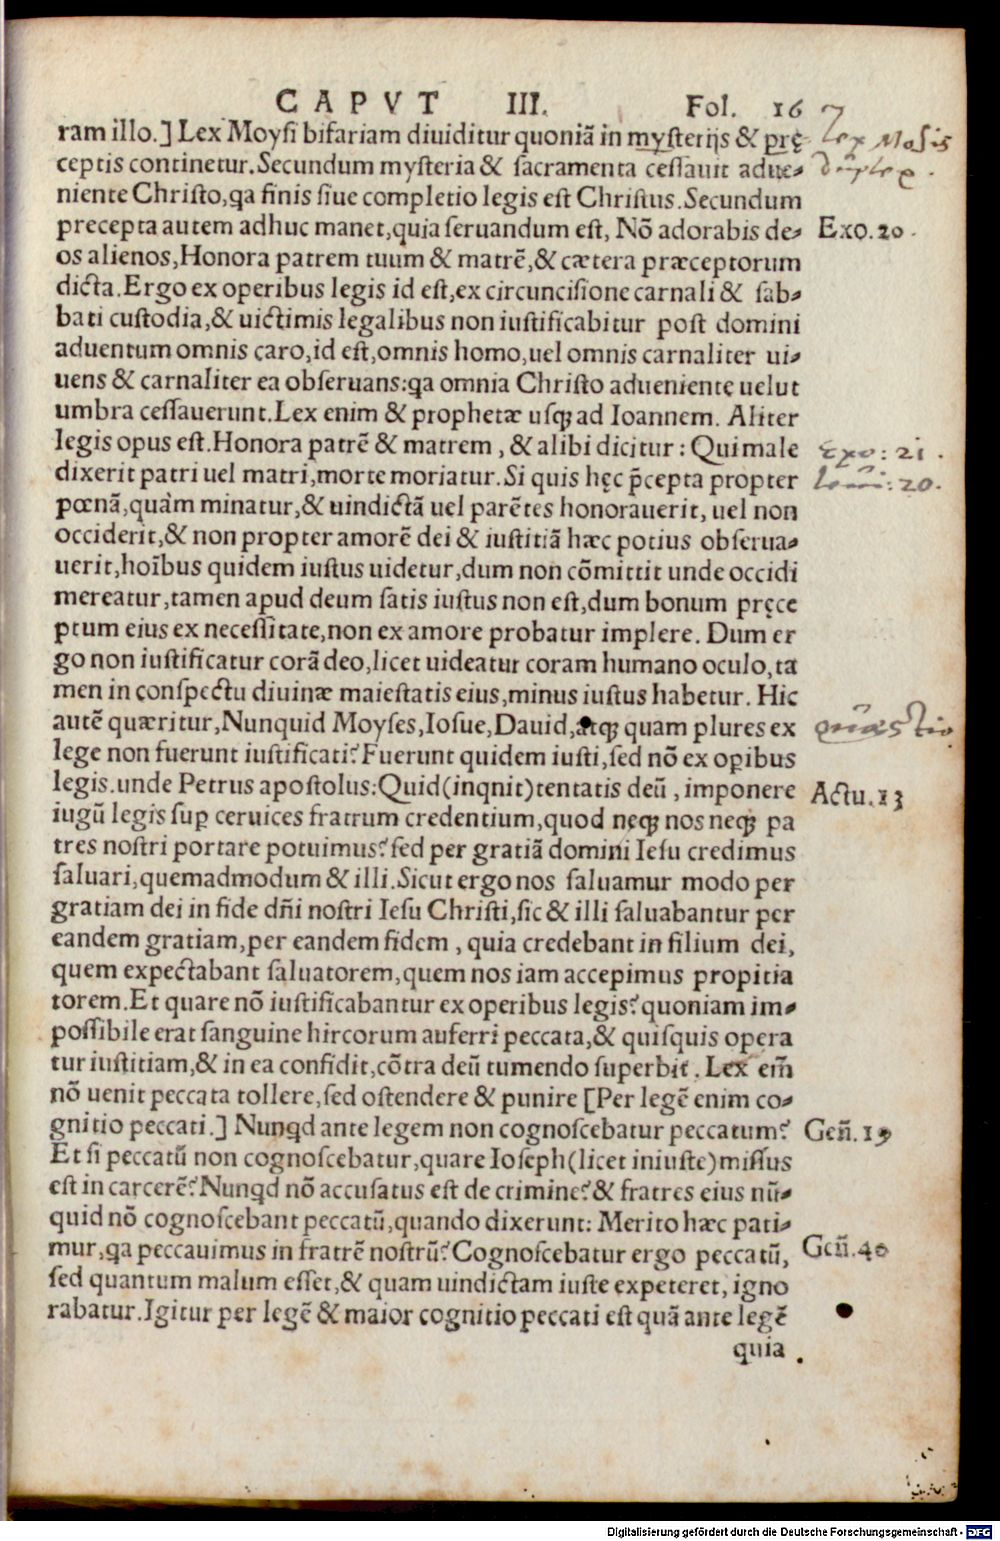 CAPVT III. Fol. 16 7
ram illo.] Lex Moysi bifariam diuiditur quoniā in mysterijs & prę Lex Mosis
ceptis continetur. Secundum mysteria & sacramenta cessauit adue- duplex.
niente Christo, ꝗa finis siue completio legis est Christus. Secundum
precepta autem adhuc manet, quia seruandum est, Nō adorabis de- Exo. 20.
os alienos, Honora patrem tuum & matrē, & cætera præceptorum
dicta. Ergo ex operibus legis id est, ex circuncisione carnali & sab-
bati custodia, & uictimis legalibus non iustificabitur post domini
aduentum omnis caro, id est, omnis homo, uel omnis carnaliter ui-
uens & carnaliter ea obseruans: ꝗa omnia Christo adueniente uelut
umbra cessauerunt. Lex enim & prophetæ usqꝫ ad Ioannem. Aliter
legis opus est. Honora patrē & matrem, & alibi dicitur: Qui male Exo: 21.
dixerit patri uel matri, morte moriatur. Si quis hęc p̄cepta propter Leui: 20.
pœnā, quàm minatur, & uindictā uel parētes honorauerit, uel non
occiderit, & non propter amorē dei & iustitiā hæc potius obserua-
uerit, hoībus quidem iustus uidetur, dum non cōmittit unde occidi
mereatur, tamen apud deum satis iustus non est, dum bonum pręce
ptum eius ex necessitate, non ex amore probatur implere. Dum er
go non iustificatur corā deo, licet uideatur coram humano oculo, ta
men in conspectu diuinæ maiestatis eius, minus iustus habetur. Hic
autē quæritur, Nunquid Moyses, Iosue, Dauid, atqꝫ quam plures ex quæstio.
lege non fuerunt iustificati? Fuerunt quidem iusti, sed nō ex oꝑibus
legis. unde Petrus apostolus: Quid (inqnit) tentatis deū, imponere Actu. 13
iugū legis suꝑ ceruices fratrum credentium, quod neqꝫ nos neqꝫ pa
tres nostri portare potuimus? sed per gratiā domini Iesu credimus
saluari, quemadmodum & illi. Sicut ergo nos saluamur modo per
gratiam dei in fide dn̄i nostri Iesu Christi, sic & illi saluabantur per
eandem gratiam, per eandem fidem, quia credebant in filium dei,
quem expectabant saluatorem, quem nos iam accepimus propitia
torem. Et quare nō iustificabantur ex operibus legis? quoniam im-
possibile erat sanguine hircorum auferri peccata, & quisquis opera
tur iustitiam, & in ea confidit, cōtra deū tumendo superbit. Lex em̄
nō uenit peccata tollere, sed ostendere & punire [Per legē enim co-
gnitio peccati.] Nunꝗd ante legem non cognoscebatur peccatum? Gen̄. 19
Et si peccatū non cognoscebatur, quare Ioseph (licet iniuste) missus
est in carcerē? Nunꝗd nō accusatus est de crimine? & fratres eius nū-
quid nō cognoscebant peccatū, quando dixerunt: Merito hæc pati-
mur, ꝗa peccauimus in fratrē nostrū? Cognoscebatur ergo peccatū, Gen̄. 40
sed quantum malum esset, & quam uindictam iuste expeteret, igno
rabatur. Igitur per legē & maior cognitio peccati est quā ante legē
quia
Digitalisierung gefördert durch die Deutsche Forschungsgemeinschaft - DFG